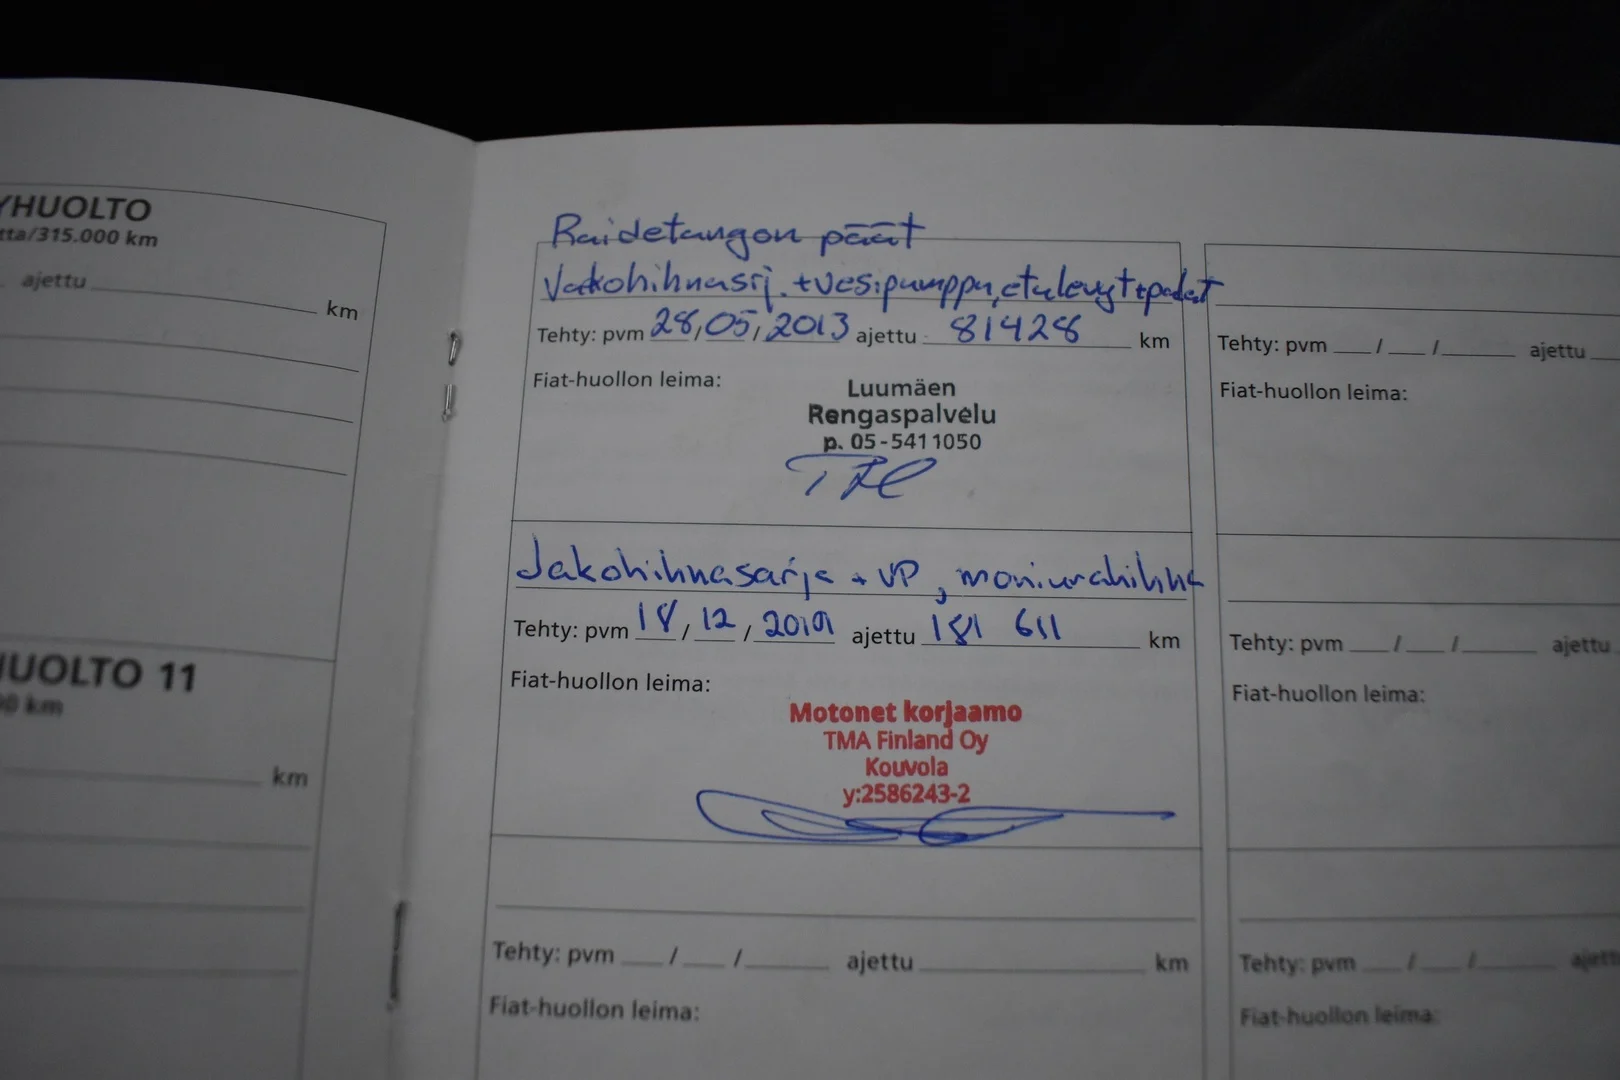 YHUOLTO
tta/315.000 km
ajettu km
UOLTO 11
0 km
km
Raidetangon päät
Jakohihnasrj. +vesipumppu, etulevyt+palat
Tehty: pvm 28/05/2013 ajettu 81428 km
Fiat-huollon leima:
Luumäen
Rengaspalvelu
p. 05-5411050
Jakohihnasarja + VP, moniurahihna
Tehty: pvm 18/12/2019 ajettu 181 611 km
Fiat-huollon leima:
Motonet korjaamo
TMA Finland Oy
Kouvola
y:2586243-2
Tehty: pvm / / ajettu km
Fiat-huollon leima:
Tehty: pvm / / ajettu
Fiat-huollon leima:
Tehty: pvm / / ajettu
Fiat-huollon leima:
Tehty: pvm / / ajett
Fiat-huollon leima: